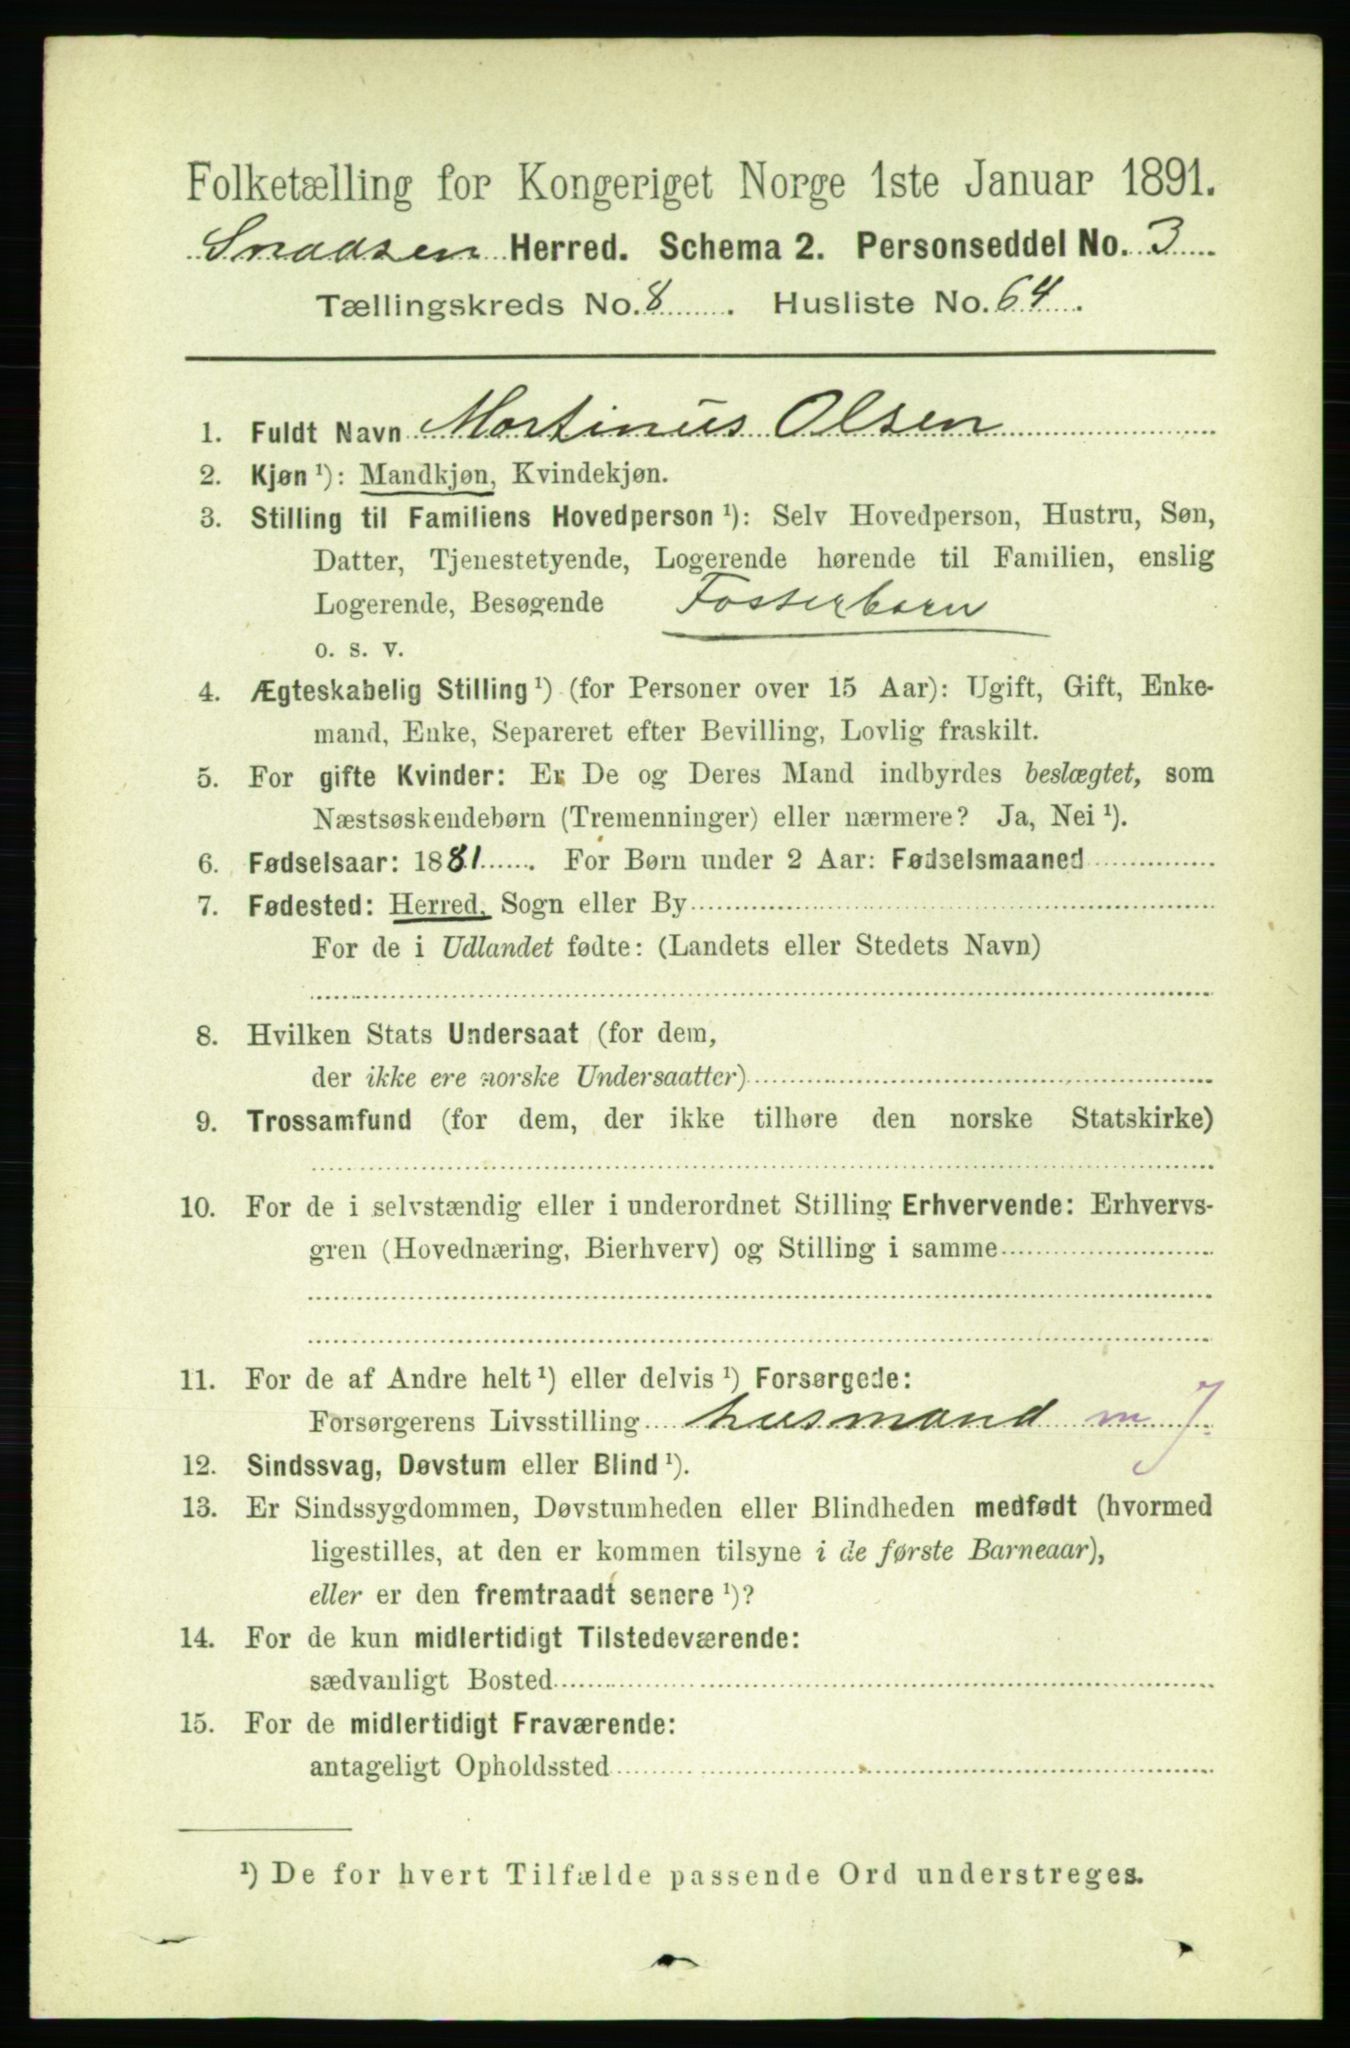 Folketælling for Kongeriget Norge 1ste Januar 1891.
Snaasen Herred. Schema 2. Personseddel No. 3
Tællingskreds No. 8. Husliste No. 64.
1. Fuldt Navn Martinus Olsen
2. Kjøn ¹): Mandkjøn, Kvindekjøn.
3. Stilling til Familiens Hovedperson ¹): Selv Hovedperson, Hustru, Søn,
Datter, Tjenestetyende, Logerende hørende til Familien, enslig
Logerende, Besøgende Fosterbarn
o. s. v.
4. Ægteskabelig Stilling ¹) (for Personer over 15 Aar): Ugift, Gift, Enke-
mand, Enke, Separeret efter Bevilling, Lovlig fraskilt.
5. For gifte Kvinder: Er De og Deres Mand indbyrdes beslægtet, som
Næstsøskendebørn (Tremenninger) eller nærmere? Ja, Nei ¹).
6. Fødselsaar: 1881. For Børn under 2 Aar: Fødselsmaaned
7. Fødested: Herred, Sogn eller By
For de i Udlandet fødte: (Landets eller Stedets Navn)
8. Hvilken Stats Undersaat (for dem,
der ikke ere norske Undersaatter)
9. Trossamfund (for dem, der ikke tilhøre den norske Statskirke)
10. For de i selvstændig eller i underordnet Stilling Erhvervende: Erhvervs-
gren (Hovednæring, Bierhverv) og Stilling i samme
11. For de af Andre helt ¹) eller delvis ¹) Forsørgede:
Forsørgerens Livsstilling husmand m J.
12. Sindssvag, Døvstum eller Blind ¹).
13. Er Sindssygdommen, Døvstumheden eller Blindheden medfødt (hvormed
ligestilles, at den er kommen tilsyne i de første Barneaar),
eller er den fremtraadt senere ¹)?
14. For de kun midlertidigt Tilstedeværende:
sædvanligt Bosted
15. For de midlertidigt Fraværende:
antageligt Opholdssted
¹) De for hvert Tilfælde passende Ord understreges.